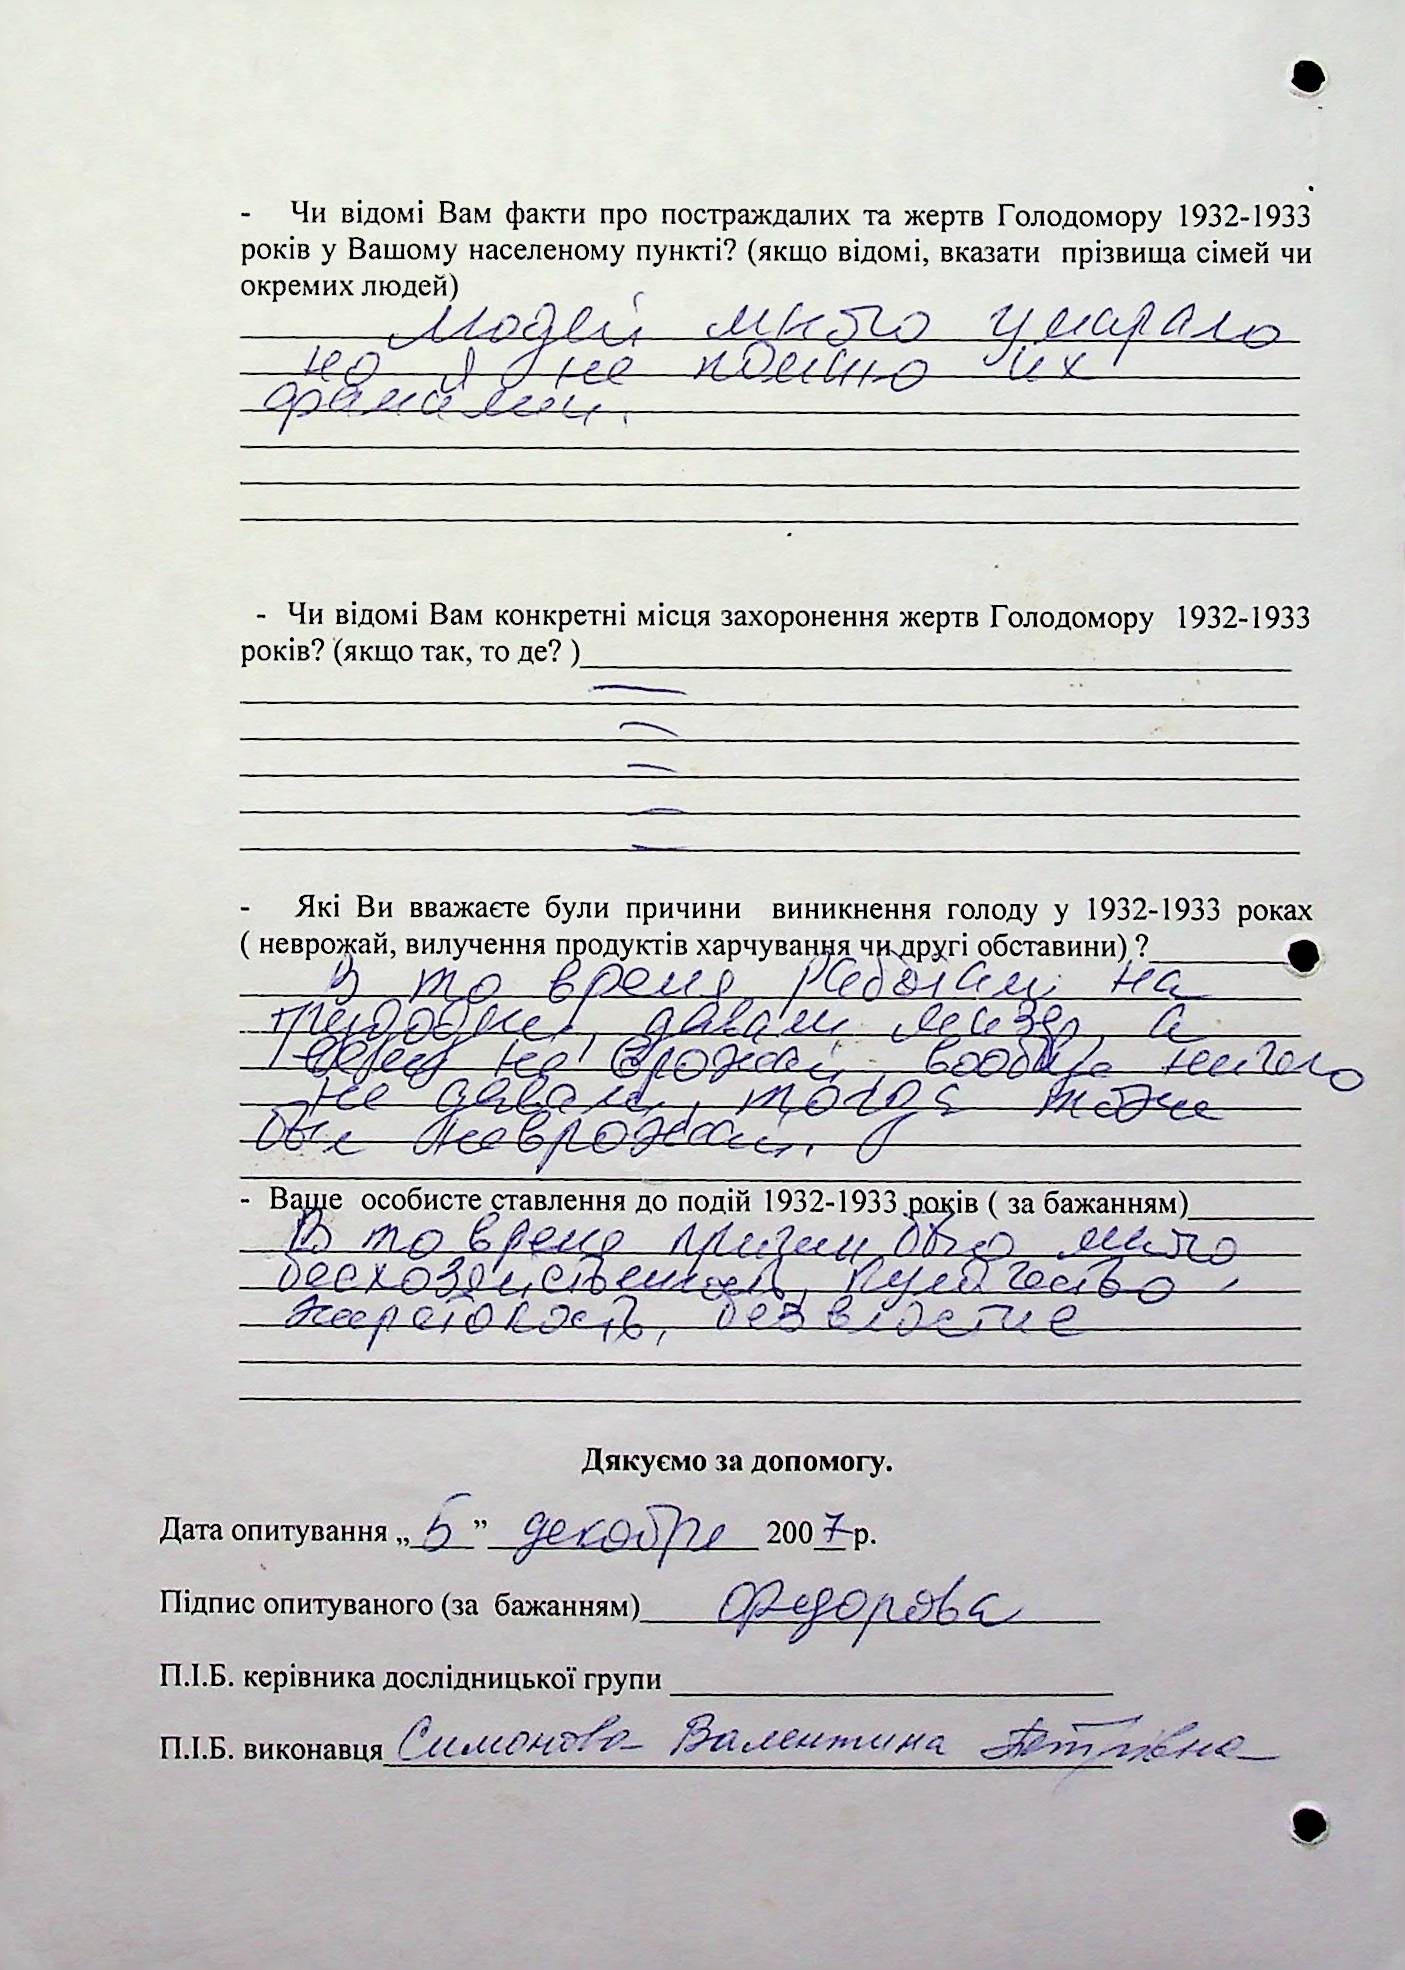 - Чи відомі Вам факти про постраждалих та жертв Голодомору 1932-1933
років у Вашому населеному пункті? (якщо відомі, вказати прізвища сімей чи
окремих людей)
Людей много умирало
но я не помню их
фамилии.
- Чи відомі Вам конкретні місця захоронення жертв Голодомору 1932-1933
років? (якщо так, то де? )
- Які Ви вважаєте були причини виникнення голоду у 1932-1933 роках
( неврожай, вилучення продуктів харчування чи другі обставини) ?
В то время работали на
трудодни, давали мизер, а
не врожай вообще ничего
не давали, тогда тоже
был неврожай.
- Ваше особисте ставлення до подій 1932-1933 років ( за бажанням)
В то время причин было много
бесхозяйственность,
жестокость, безвластие
Дякуємо за допомогу.
Дата опитування „ 5 ” декабря 2007 р.
Підпис опитуваного (за бажанням) Федорова
П.І.Б. керівника дослідницької групи
П.І.Б. виконавця Симонова Валентина Петрівна